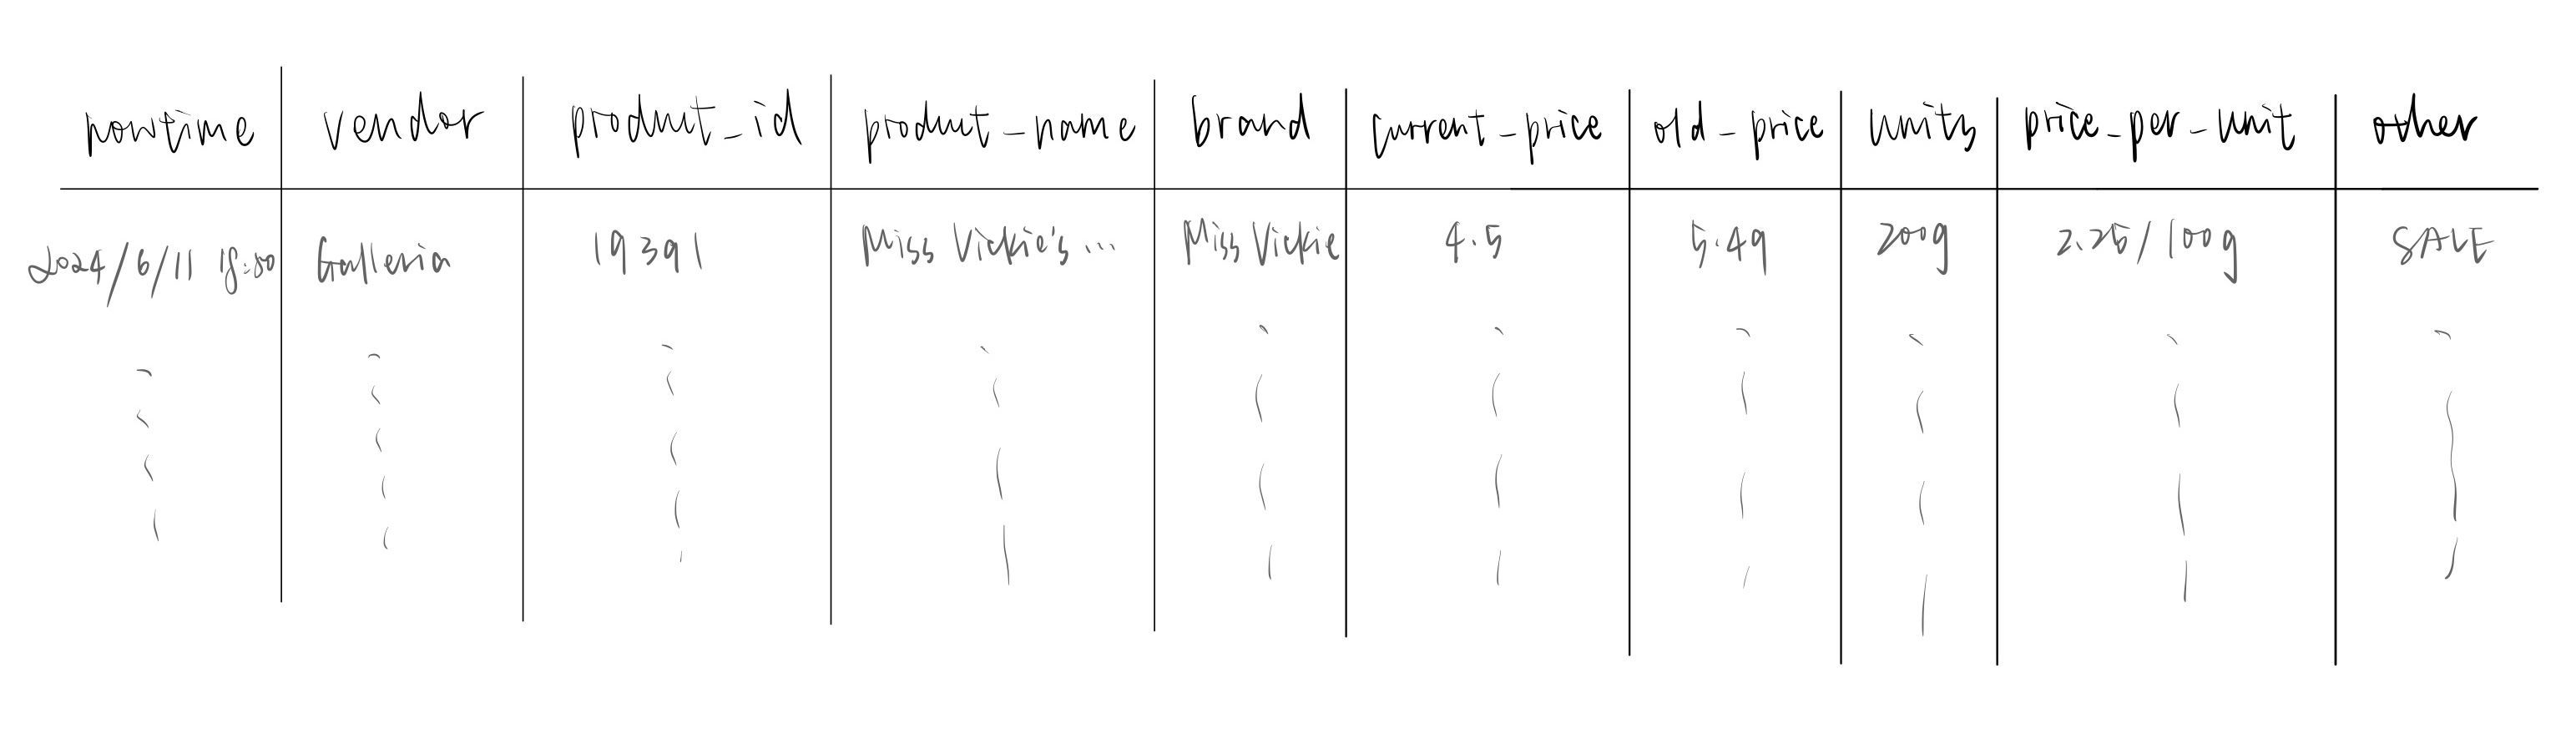 nowtime vendor product_id product_name brand current_price old_price units price_per_unit other
2024/6/11 18:00 Galleria 19391 Miss Vickie's ... Miss Vickie 4.5 5.49 200g 2.25/100g SALE